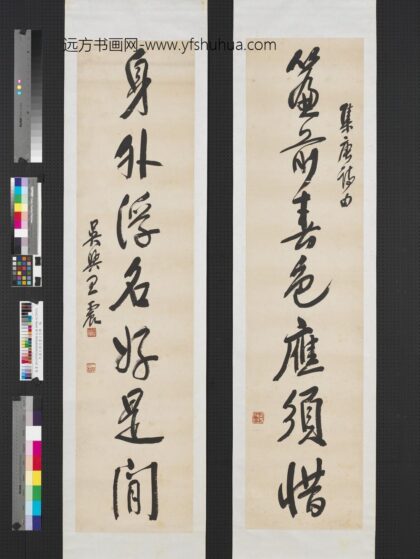 远方书画网-www.yfshuhua.com
集唐詩句
簾前春色應須惜
身外浮名好是閒
吳興王震